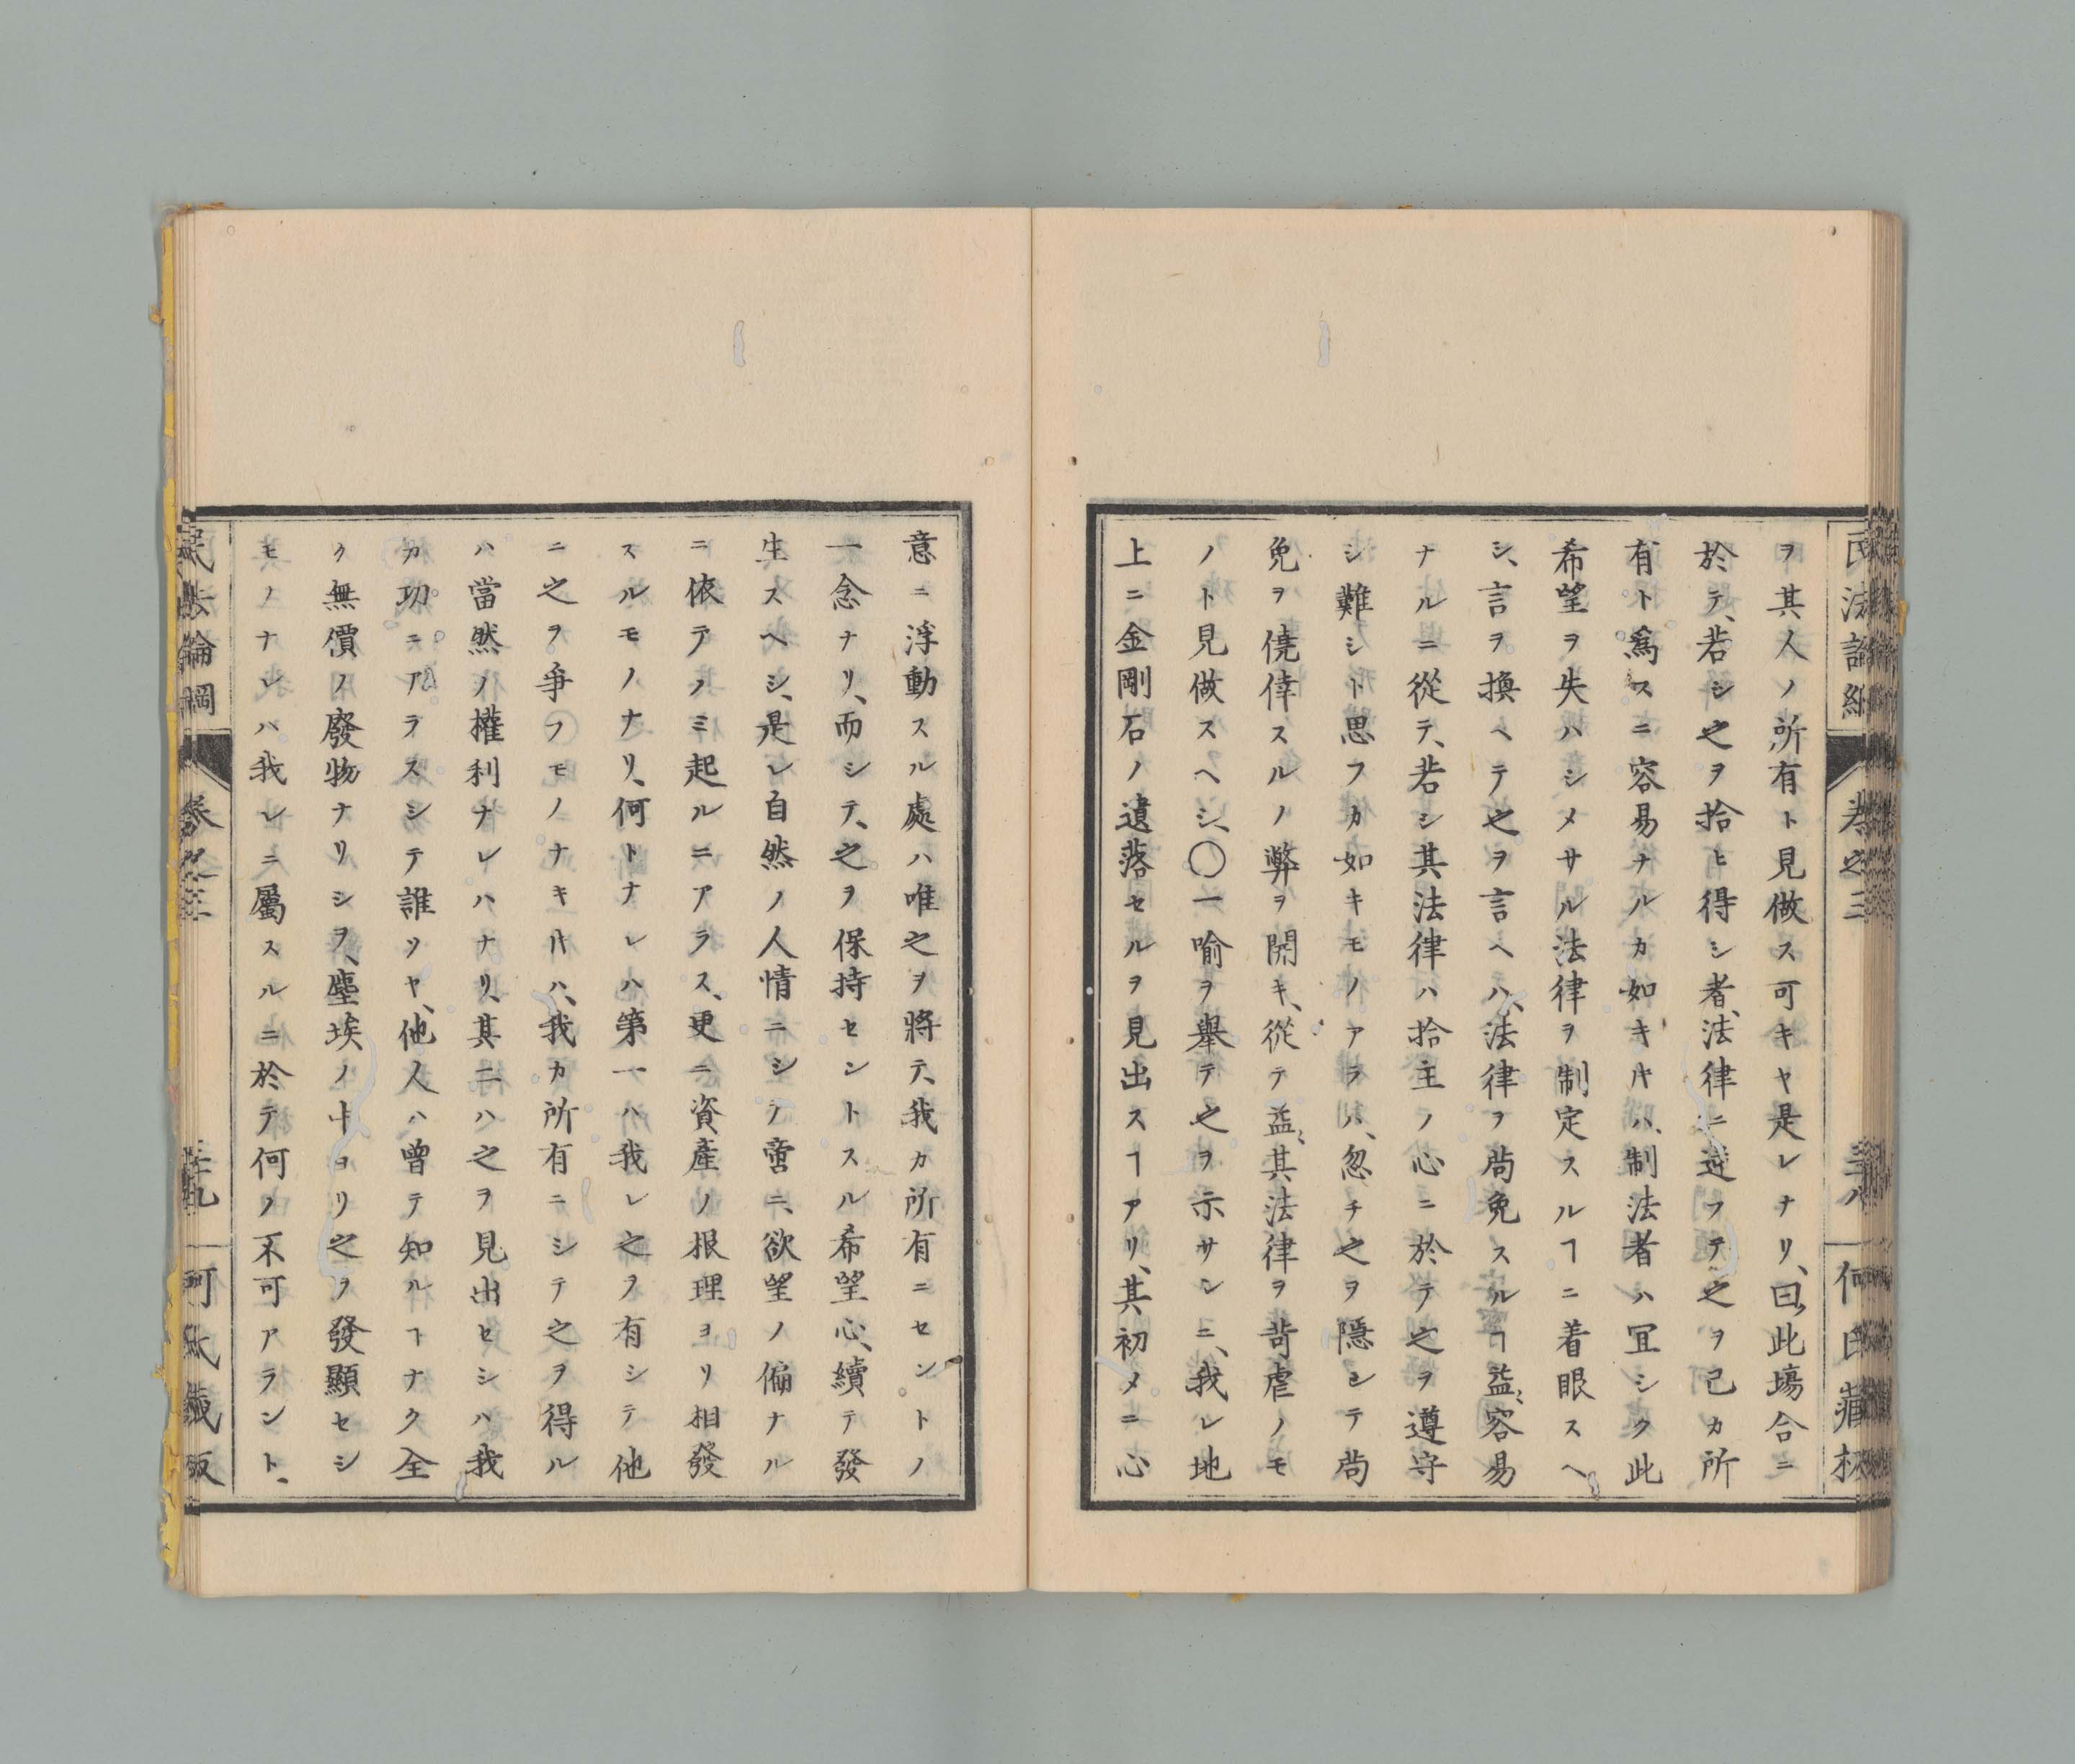 ヲ其人ノ所有ト見做ス可キヤ是レナリ、曰、此塲合ニ
於テ、若シ之ヲ拾ヒ得シ者、法律ニ述フテ之ヲ己カ所
有ト爲スニ容易ナルカ如キ𪜈ハ、制法者ハ冝シク此
希望ヲ失ハシメサル法律ヲ制定スルヿニ着眼スヘ
シ、言ヲ換ヘテ之ヲ言ヘハ、法律ヲ尚免スルヿ益〻容易
ナルニ從テ、若シ其法律ハ拾主ノ心ニ於テ之ヲ遵守
シ難シト思フカ如キモノアラハ、忽チ之ヲ隱シテ尚
免ヲ僥倖スルノ弊ヲ開キ、從テ益〻其法律ヲ苛虐ノモ
ノト見做スヘシ、〇一喻ヲ舉テ之ヲ示サンニ、我レ地
上ニ金剛石ノ遺落セルヲ見出スヿアリ、其初メニ心
意ニ浮動スル處ハ唯之ヲ將テ、我カ所有ニセントノ
一念ナリ、而シテ、之ヲ保持セントスル希望心、續テ發
生スヘシ、是レ自然ノ人情ニシテ啻ニ、欲望ノ偏ナル
ニ依テノミ起ルニアラス、更ニ資產ノ根理ヨリ相發
スルモノナリ、何トナレハ第一ハ我レ之ヲ有シテ他
ニ之ヲ爭フモノナキ𪜈ハ、我カ所有ニシテ之ヲ得ル
ハ當然ノ權利ナレハナリ、其二ハ之ヲ見出セシハ我
カ功ニアラスシテ誰ソヤ、他人ハ曾テ知ルヿナク全
ク無價ノ廢物ナリシヲ、塵埃ノ中ヨリ之ヲ發顯セシ
モノナレバ我レニ屬スルニ於テ何ノ不可アラント、
民法論綱 卷之三 三十九 何氏藏版